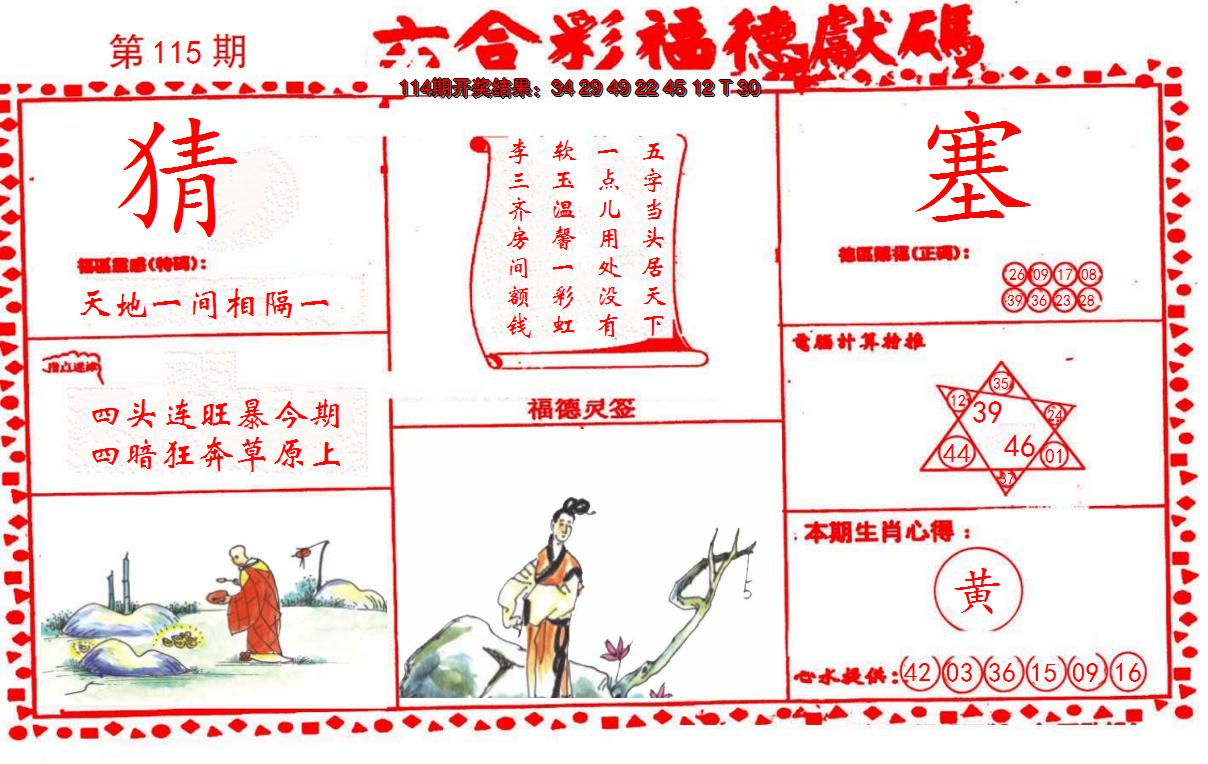 第115期
六合彩福德獻碼
114期开奖结果：34 29 49 22 45 12 T 30
猜
福區靈感(特碼)：
天地一间相隔一
指点迷津
四头连旺暴今期
四暗狂奔草原上
五字当头居天下
一点儿用处没有
软玉温馨一彩虹
李三齐房间额钱
福德灵签
5
塞
德區賜福(正碼)：
26 09 17 08
39 36 23 28
電腦計算檢推
35
12 39 24
44 46 01
37
本期生肖心得：
黄
心水提供：42 03 36 15 09 16